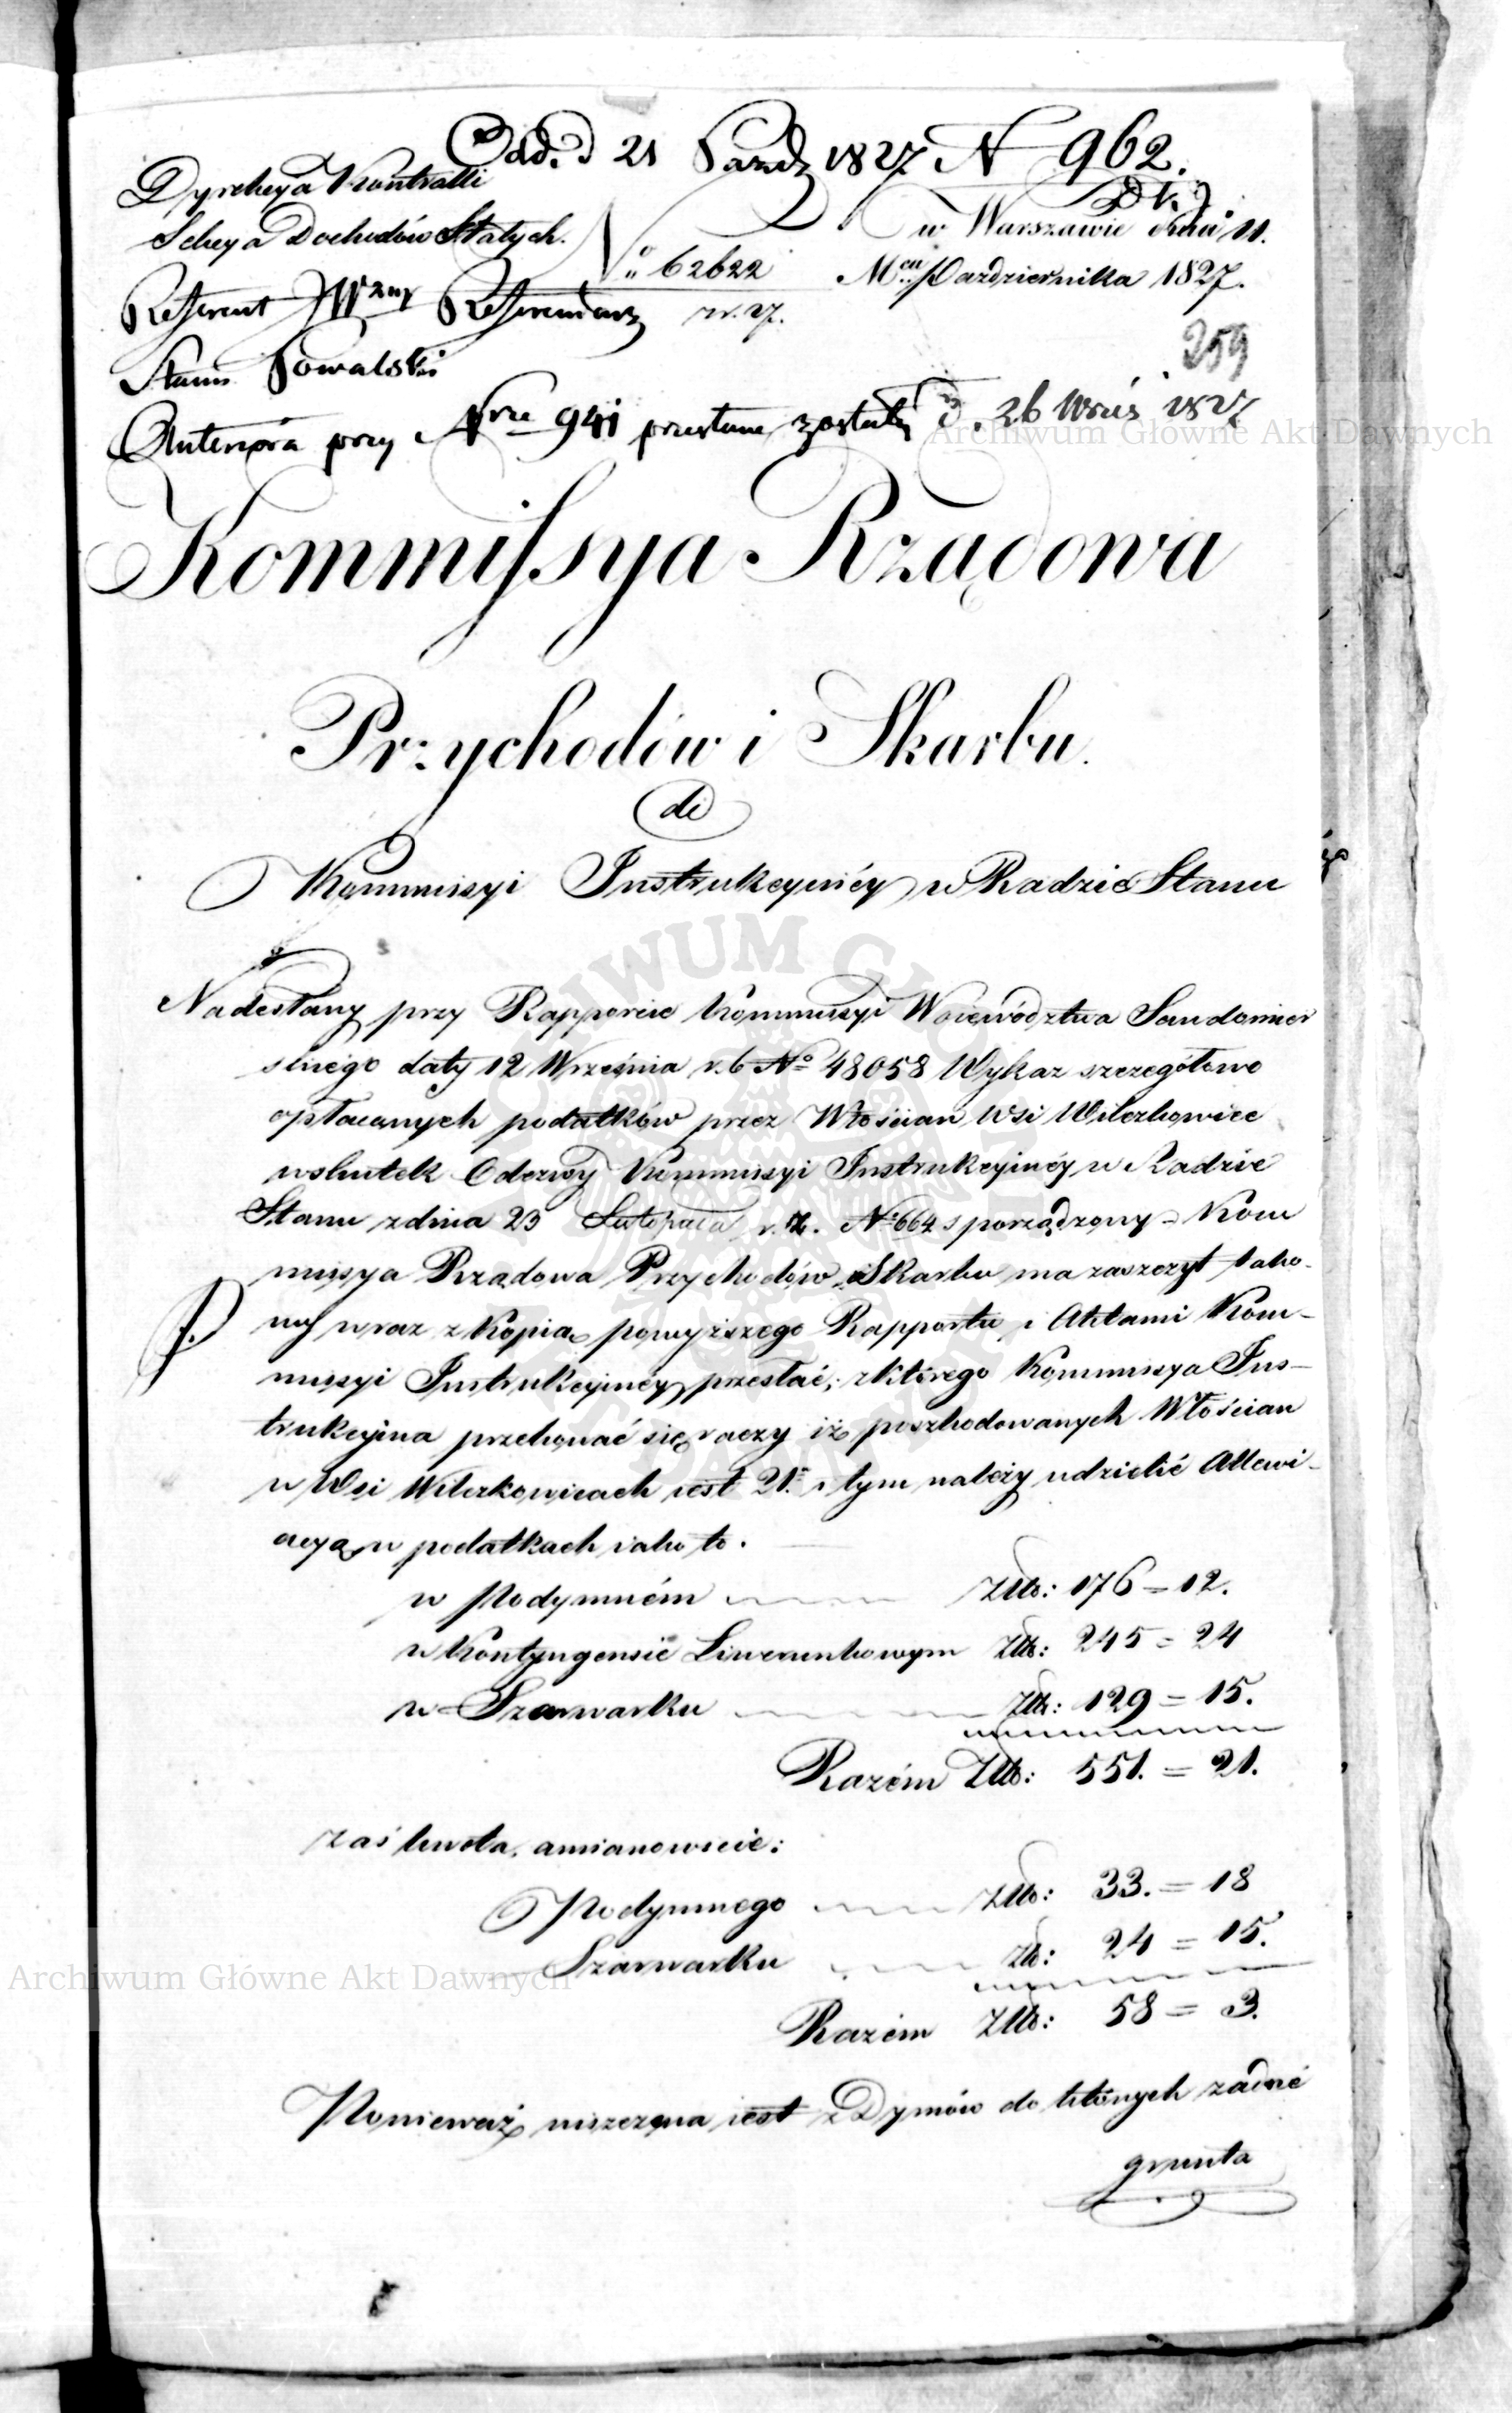 Odd. d 21 Pazdz 1827 N 962.
Dyrekcya Kontrolli
Sekcya Dochodów Stałych.
w Warszawie dnia 11.
No 62622
Mca Pazdziernika 1827.
Referent JW Referendarz
259
Stanu Kowalski
Anteriora przy Nrze 941 przesłane zostały d. 26 Wrześ 1827
Kommissya Rządowa
Przychodów i Skarbu.
do
Kommissyi Instrukcyinéy w Radzie Stanu
Nadesłany przy Rapporcie Kommissyi Woiewództwa Sandomier
skiego daty 12 Września r.b No 48058 Wykaz szczegółowo
opłacanych podatków przez Włościan Wsi Wilczkowice
wskutek Odezwy Kommissyi Instrukcyinéy w Radzie
Stanu z dnia 23 Listopada r. z. No 664 sporządzony – Kom
missya Rządowa Przychodów i Skarbu ma zaszczyt tako-
wy wraz z Kopią powyższego Rapportu i Aktami Kom-
missyi Instrukcyinéy przesłać; z którego Kommissya Ins-
trukcyina przekonać się raczy iż poszkodowanych Włościan
w Wsi Wilczkowicach iest 21. i tym należy udzielić Allewi-
acyą w podatkach iako to.
w Podymném Złp: 176 = 12.
w Kontyngensie Liwerunkowym Złp: 245 = 24
w Szarwarku Złp: 129 = 15.
Razém Złp: 551. = 21.
zaś kwota, a mianowicie:
Podymnego Złp: 33. = 18
Szarwarku Zł: 24 = 15.
Razém Złp: 58 = 3.
Ponieważ niszczona iest z Dymów do których żadne
grunta
Archiwum Główne Akt Dawnych
Archiwum Główne Akt Dawnych